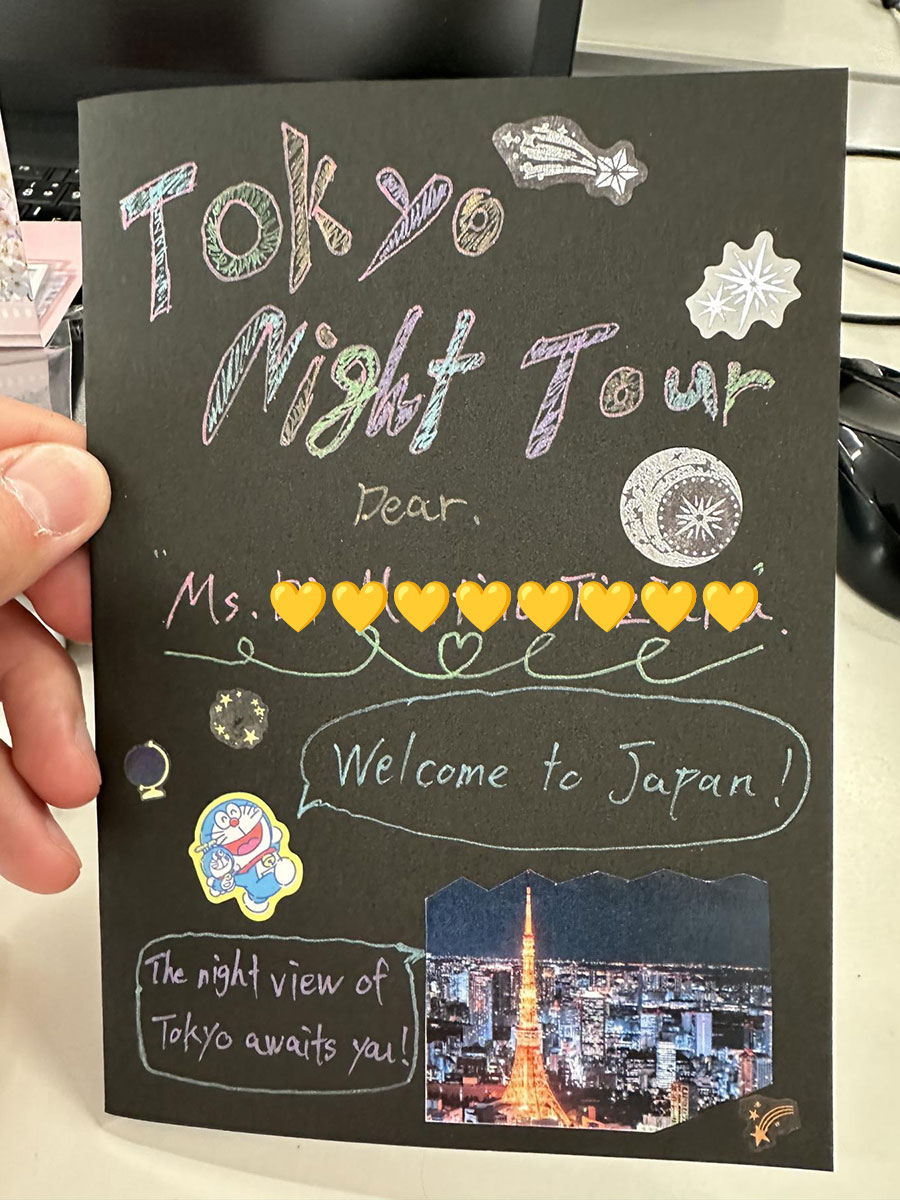 Tokyo
Night Tour
Dear.
"Ms.
Welcome to Japan!
The night view of
Tokyo awaits you!